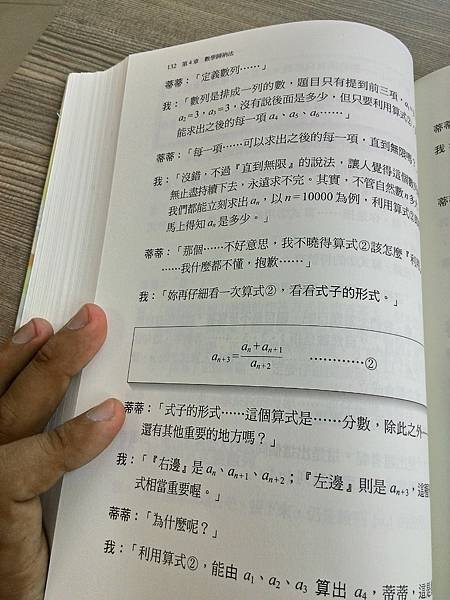 132 第 4 章 數學歸納法
蒂蒂：「定義數列……」
我：「數列是排成一列的數，題目只有提到前三項，
a₂＝3，a₃＝3，沒有說後面是多少，但只要利用算式②，
能求出之後的每一項 a₄、a₅、a₆……」
蒂蒂：「每一項……可以求出之後的每一項，直到無限嗎？
我：「沒錯，不過『直到無限』的說法，讓人覺得這個數
無止盡持續下去，永遠求不完。其實，不管自然數 n 多
我們都能立刻求出 aₙ，以 n＝10000 為例，利用算式②
馬上得知 aₙ 是多少。」
蒂蒂：「那個……不好意思，我不曉得算式②該怎麼『利
……我什麼都不懂，抱歉……」
我：「妳再仔細看一次算式②，看看式子的形式。」
aₙ₊₃＝(aₙ＋aₙ₊₁)/aₙ₊₂ …………②
蒂蒂：「式子的形式……這個算式是……分數，除此之外
還有其他重要的地方嗎？」
我：「『右邊』是 aₙ、aₙ₊₁、aₙ₊₂；『左邊』則是 aₙ₊₃，這
式相當重要喔。」
蒂蒂：「為什麼呢？」
我：「利用算式②，能由 a₁、a₂、a₃ 算出 a₄，蒂蒂，這